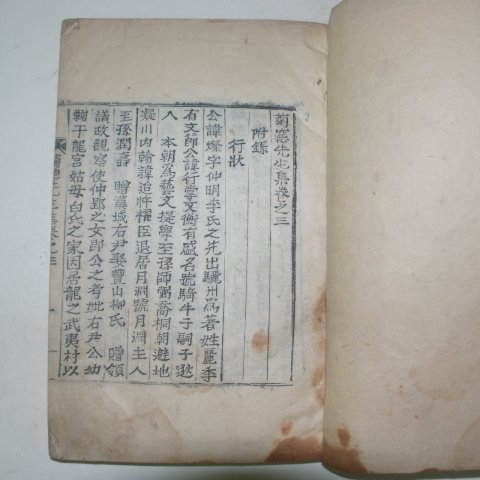 菊窓先生集卷之三
附錄
行狀
公諱燦字仲明李氏之先出驪州爲著姓麗季
有文節公諱行學文衡有盛名號騎牛子嗣子逖
入 本朝爲藝文提學至孫師弼喬桐朝避地
凝川內翰諱迨將懼臣退居月淵號月淵主人
至孫潤壽 贈漢城右尹娶豊山柳氏 贈領
議政觀察使仲郢之女卽公之考妣右尹公幼
鞠于龍宮姑母白氏之家因居龍之武夷村以